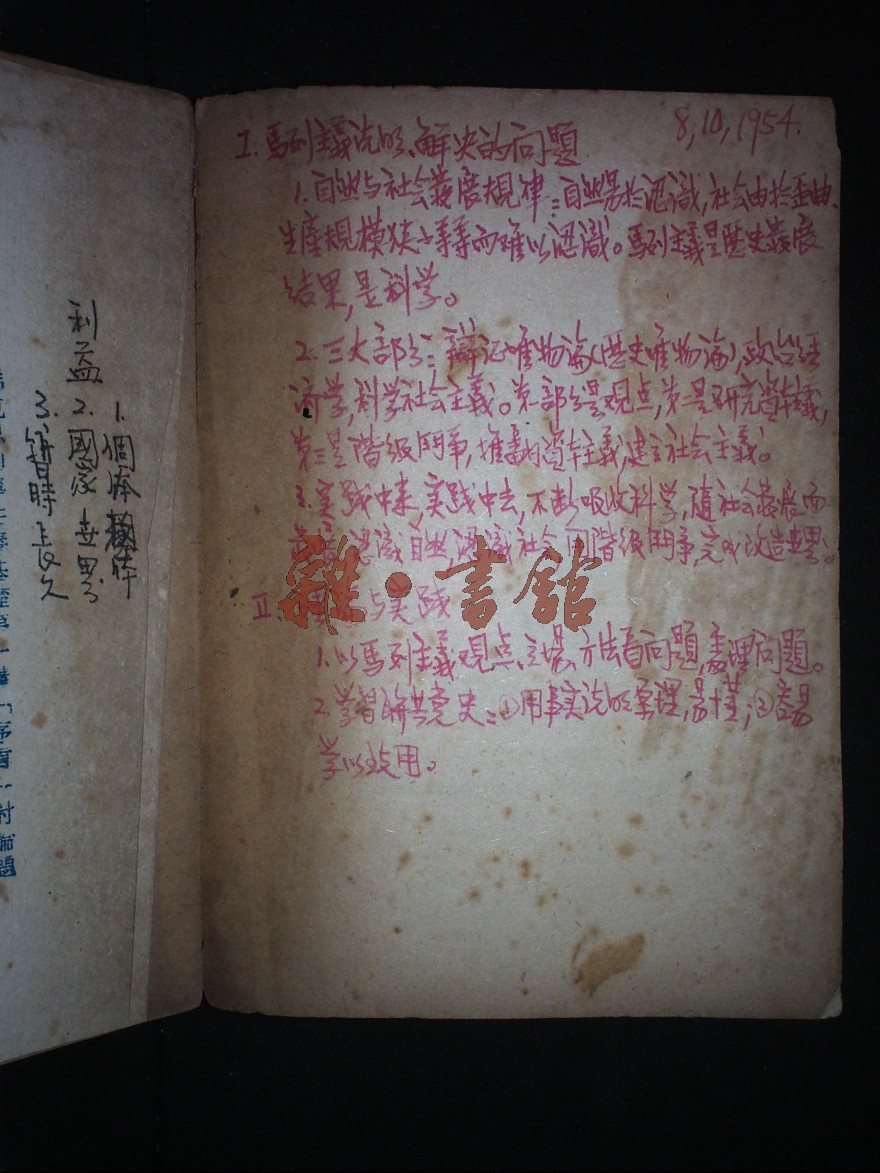 8,10,1954.
I. 馬列主義说明、解决的问題
1. 自然与社会發展規律：自然易於認識，社会由於歪曲、
生産規模狹小等等而难以認識。馬列主義是歷史發展
结果，是科学。
2. 三大部分：辯证唯物論（歷史唯物論），政治经
济学，科学社会主義。第一部分是观点，第二是研究資本主義，
第三是階級鬥爭，推翻資本主義，建立社会主義。
3. 实践中来，实践中去，不断吸收科学，隨社会發展而
認識自然，認識社会，階級鬥爭，完成改造世界。
II. 与实践
1. 以馬列主義观点、立場、方法看问題，處理问題。
2. 学習联共党史：①用事实说明原理，易懂；②容易
学以致用。
雜·書館
利益
1. 個体
2. 國家 世界
3. 暫時 長久